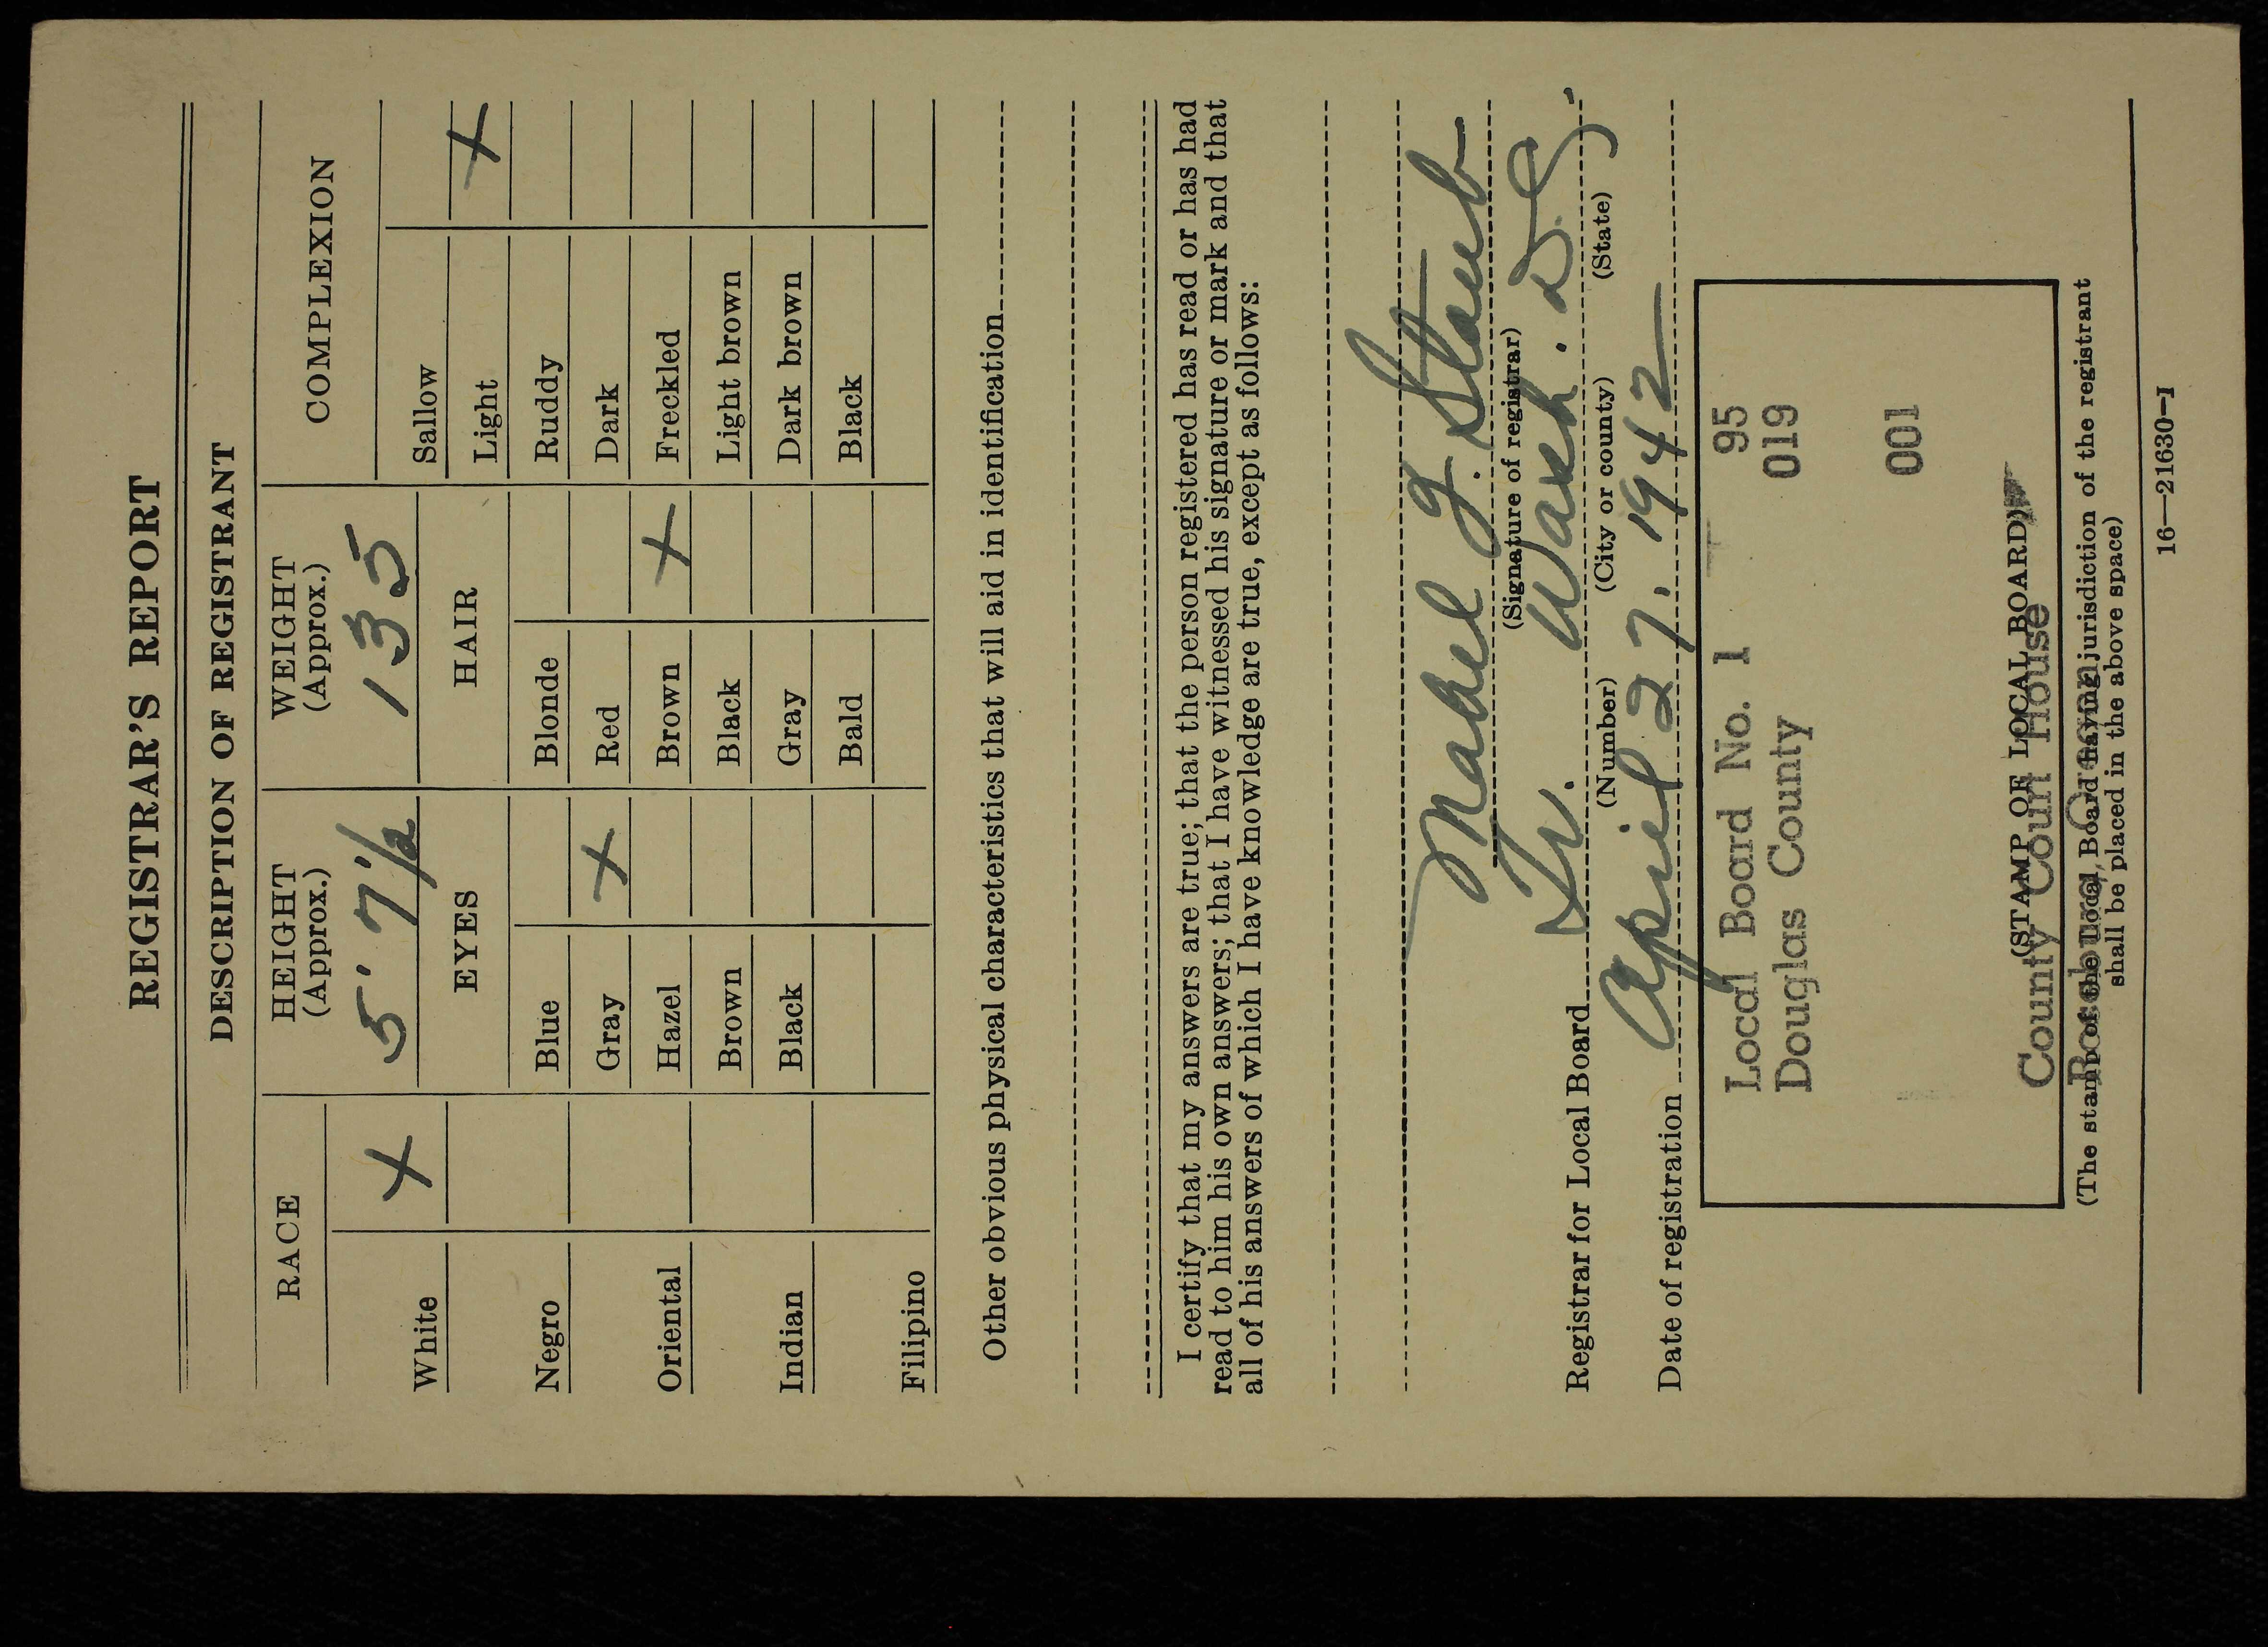 REGISTRAR'S REPORT
DESCRIPTION OF REGISTRANT
RACE
White X
Negro
Oriental
Indian
Filipino
HEIGHT
(Approx.)
5' 7 1/2
WEIGHT
(Approx.)
135
COMPLEXION
EYES
Blue
Gray X
Hazel
Brown
Black
HAIR
Blonde
Red
Brown X
Black
Gray
Bald
Sallow
Light X
Ruddy
Dark
Freckled
Light brown
Dark brown
Black
Other obvious physical characteristics that will aid in identification
I certify that my answers are true; that the person registered has read or has had
read to him his own answers; that I have witnessed his signature or mark and that
all of his answers of which I have knowledge are true, except as follows:
Mabel J. Staub
(Signature of registrar)
Registrar for Local Board Tr. Wash. D.C.
(Number) (City or county) (State)
Date of registration April 27. 1942
Local Board No. 1 95
Douglas County 019
001
(STAMP OF LOCAL BOARD)
County Court House
Roseburg, Oregon
(The stamp of the Local Board having jurisdiction of the registrant
shall be placed in the above space)
16—21630-1